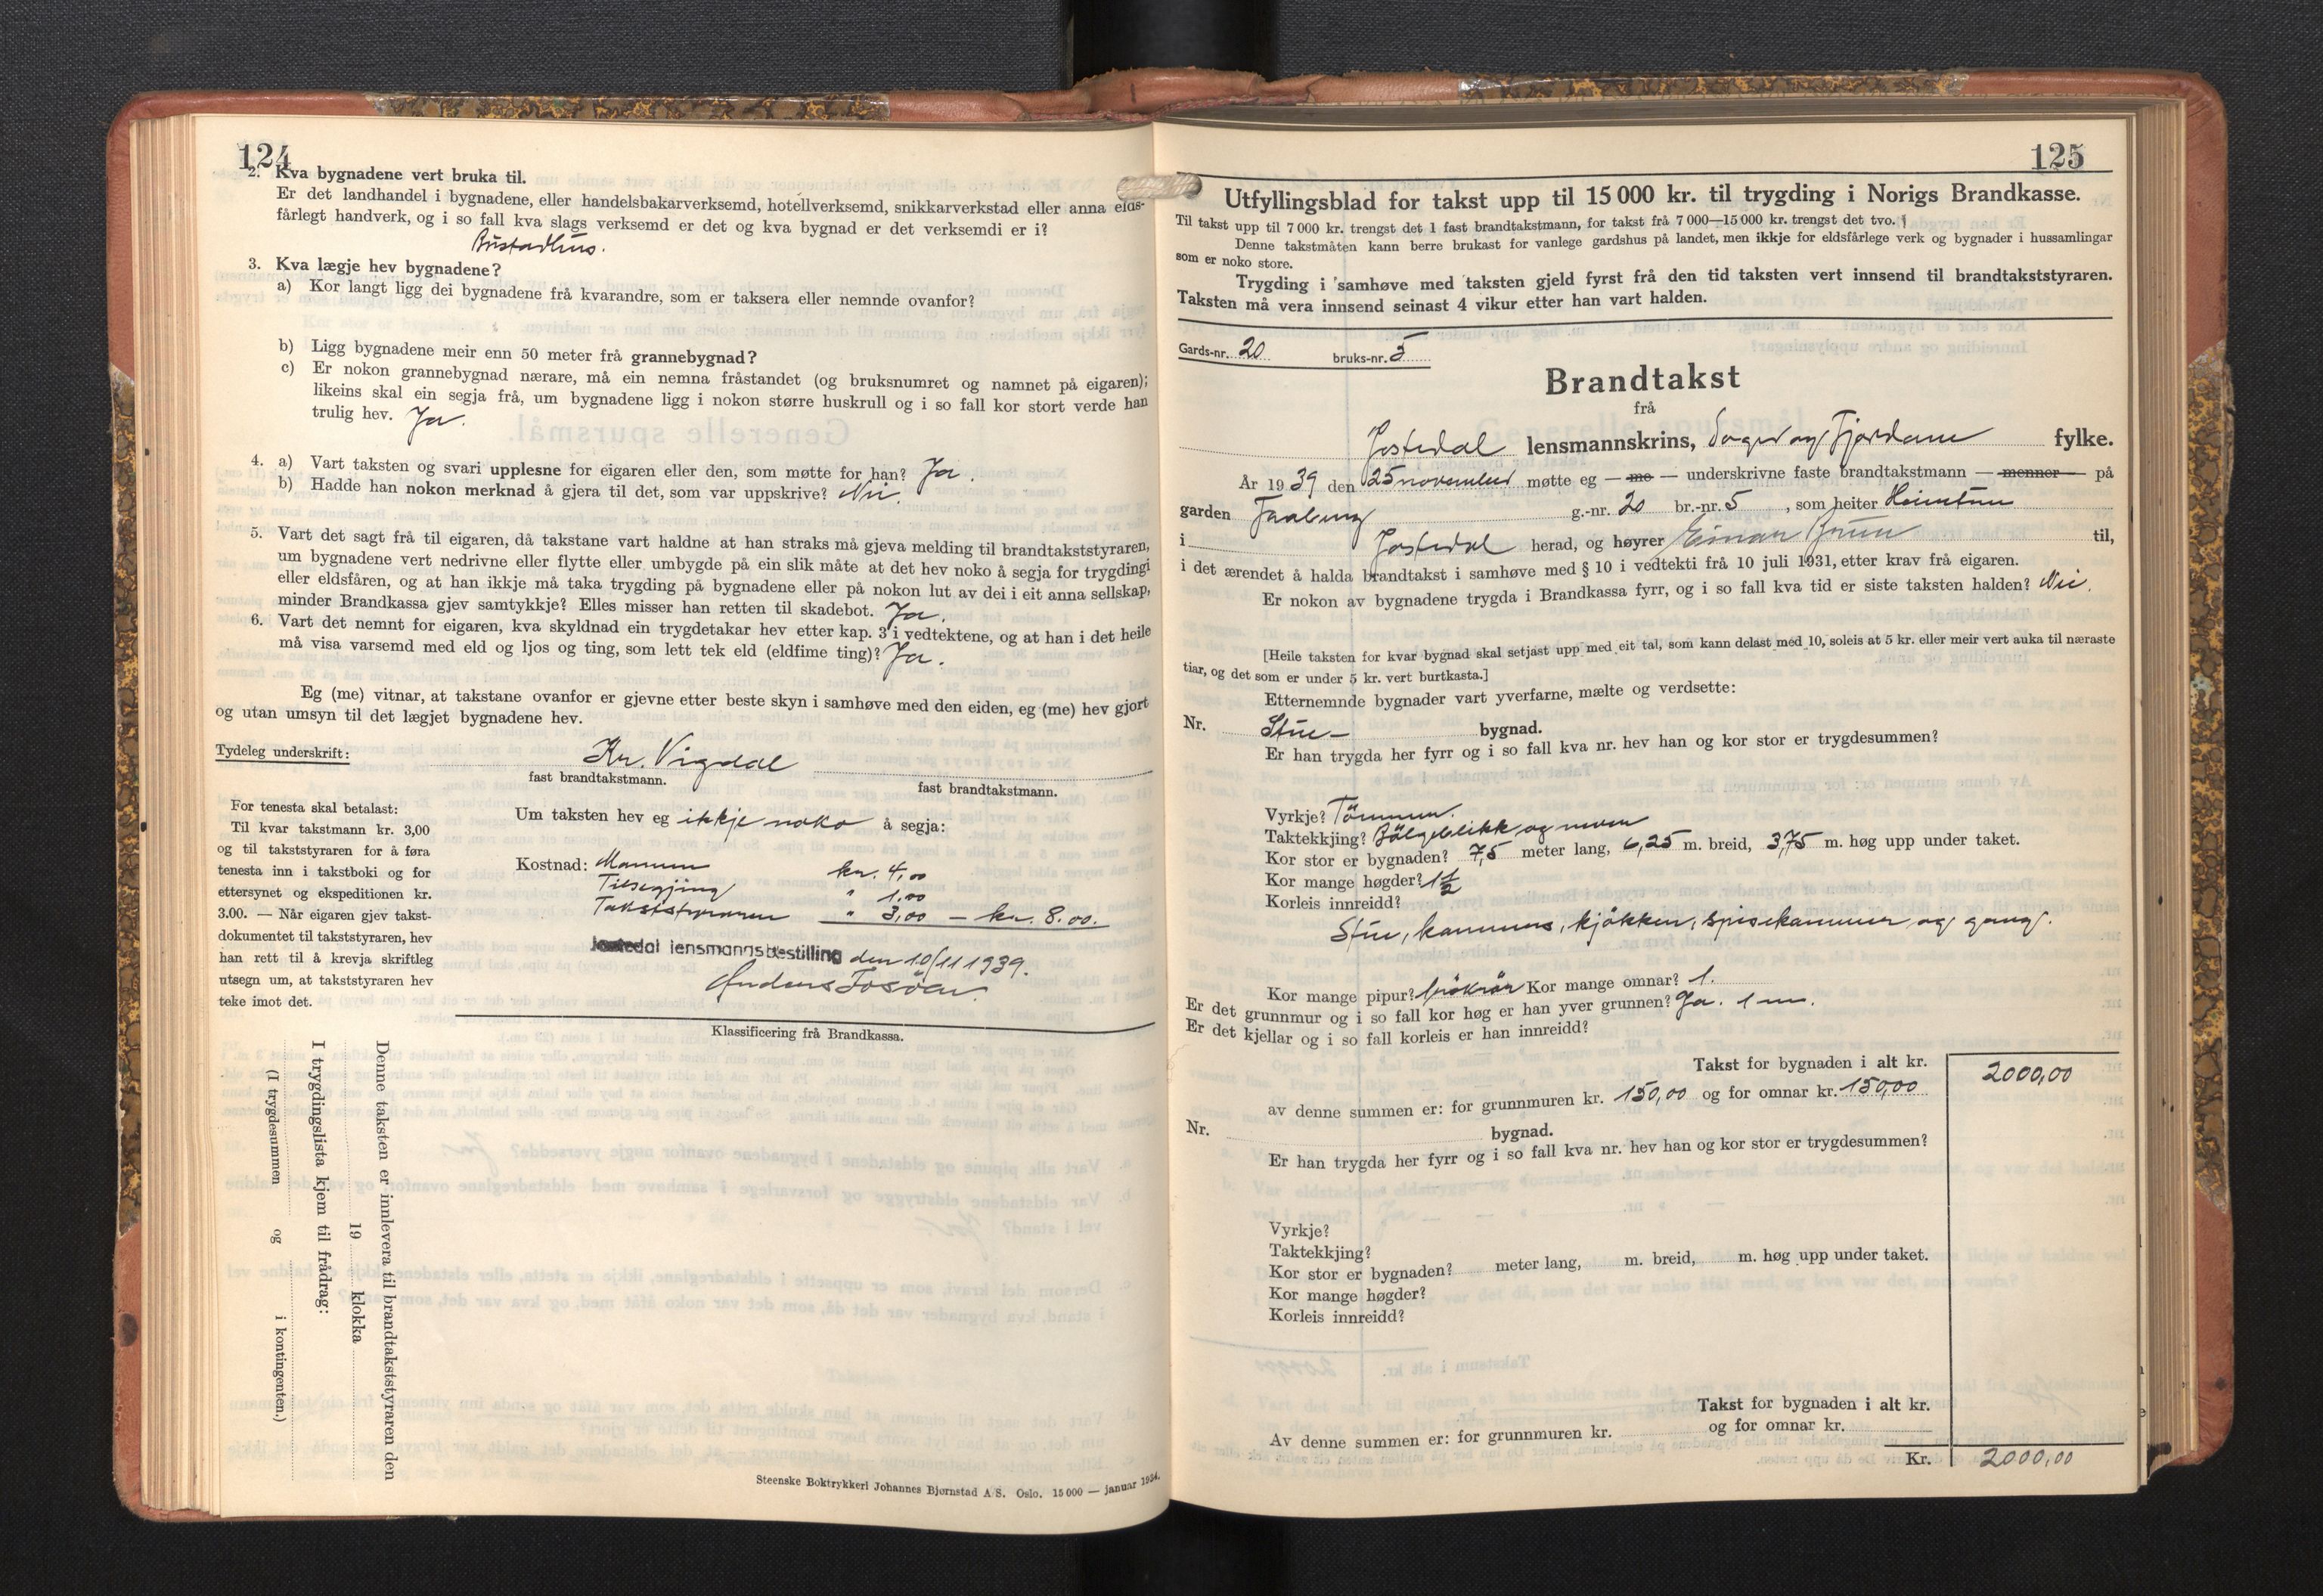 124
2. Kva bygnadene vert bruka til.
Er det landhandel i bygnadene, eller handelsbakarverksemd, hotellverksemd, snikkarverkstad eller anna elds-
fårlegt handverk, og i so fall kva slags verksemd er det og kva bygnad er det verksemdi er i?
Bustadhus.
3. Kva lægje hev bygnadene?
a) Kor langt ligg dei bygnadene frå kvarandre, som er taksera eller nemnde ovanfor?
b) Ligg bygnadene meir enn 50 meter frå grannebygnad?
c) Er nokon grannebygnad nærare, må ein nemna fråstandet (og bruksnumret og namnet på eigaren);
likeins skal ein segja frå, um bygnadene ligg i nokon større huskrull og i so fall kor stort verde han
trulig hev. Ja.
4. a) Vart taksten og svari upplesne for eigaren eller den, som møtte for han? Ja.
b) Hadde han nokon merknad å gjera til det, som var uppskrive? Nei.
5. Vart det sagt frå til eigaren, då takstane vart haldne at han straks må gjeva melding til brandtakststyraren,
um bygnadene vert nedrivne eller flytte eller umbygde på ein slik måte at det hev noko å segja for trygdingi
eller eldsfåren, og at han ikkje må taka trygding på bygnadene eller på nokon lut av dei i eit anna sellskap,
minder Brandkassa gjev samtykkje? Elles misser han retten til skadebot. Ja.
6. Vart det nemnt for eigaren, kva skyldnad ein trygdetakar hev etter kap. 3 i vedtektene, og at han i det heile
må visa varsemd med eld og ljos og ting, som lett tek eld (eldfime ting)? Ja.
Eg (me) vitnar, at takstane ovanfor er gjevne etter beste skyn i samhøve med den eiden, eg (me) hev gjort
og utan umsyn til det lægjet bygnadene hev.
Tydeleg underskrift: Kr. Vigdal
fast brandtakstmann. fast brandtakstmann.
For tenesta skal betalast:
Til kvar takstmann kr. 3,00
og til takststyraren for å føra
tenesta inn i takstboki og for
ettersynet og ekspeditionen kr.
3.00. — Når eigaren gjev takst-
dokumentet til takststyraren, hev
han rett til å krevja skriftleg
utsegn um, at takststyraren hev
teke imot det.
Um taksten hev eg ikkje noko å segja:
Kostnad: Mannen kr. 4,00
Tilsegjing " 1.00
Takststyraren " 3,00 — kr. 8.00.
Jostedal lensmannsbestilling den 10/11 1939.
Anders
Klassificering frå Brandkassa.
Denne taksten er innlevera til brandtakststyraren den
19 klokka
I trygdingslista kjem til frådrag:
(I trygdesummen og i kontingenten.)
Steenske Boktrykkeri Johannes Bjørnstad A/S. Oslo. 15 000 — januar 1934.
125
Utfyllingsblad for takst upp til 15 000 kr. til trygding i Norigs Brandkasse.
Til takst upp til 7 000 kr. trengst det 1 fast brandtakstmann, for takst frå 7 000—15 000 kr. trengst det tvo.
Denne takstmåten kann berre brukast for vanlege gardshus på landet, men ikkje for eldsfårlege verk og bygnader i hussamlingar
som er noko store.
Trygding i samhøve med taksten gjeld fyrst frå den tid taksten vert innsend til brandtakststyraren.
Taksten må vera innsend seinast 4 vikur etter han vart halden.
Gards-nr. 20 bruks-nr. 5
Brandtakst
frå
Jostedal lensmannskrins, Sogn og Fjordane fylke.
År 1939 den 25 november møtte eg — me — underskrivne faste brandtakstmann — menner — på
garden Faaberg g.-nr. 20 br.-nr. 5, som heiter Heimtun
i Jostedal herad, og høyrer Einar Bruu til,
i det ærendet å halda brandtakst i samhøve med § 10 i vedtekti frå 10 juli 1931, etter krav frå eigaren.
Er nokon av bygnadene trygda i Brandkassa fyrr, og i so fall kva tid er siste taksten halden? Nei.
[Heile taksten for kvar bygnad skal setjast upp med eit tal, som kann delast med 10, soleis at 5 kr. eller meir vert auka til næraste
tiar, og det som er under 5 kr. vert burtkasta.]
Etternemnde bygnader vart yverfarne, mælte og verdsette:
Nr. Stue- bygnad.
Er han trygda her fyrr og i so fall kva nr. hev han og kor stor er trygdesummen?
Vyrkje? Tömmer.
Taktekkjing? Bölgeblikk og never
Kor stor er bygnaden? 7,5 meter lang, 6,25 m. breid, 3,75 m. høg upp under taket.
Kor mange høgder? 1½
Korleis innreidd?
Stue, kammers, kjökken, spisekammer og gang.
Kor mange pipur? Kor mange omnar? 1.
Er det grunnmur og i so fall kor høg er han yver grunnen? Ja. 1 m.
Er det kjellar og i so fall korleis er han innreidd?
Takst for bygnaden i alt kr. 2000,00
av denne summen er: for grunnmuren kr. 150,00 og for omnar kr. 150,00
Nr. bygnad.
Er han trygda her fyrr og i so fall kva nr. hev han og kor stor er trygdesummen?
Vyrkje?
Taktekkjing?
Kor stor er bygnaden? meter lang, m. breid, m. høg upp under taket.
Kor mange høgder?
Korleis innreidd?
Takst for bygnaden i alt kr.
Av denne summen er: for grunnmuren kr. og for omnar kr.
Kr. 2000,00